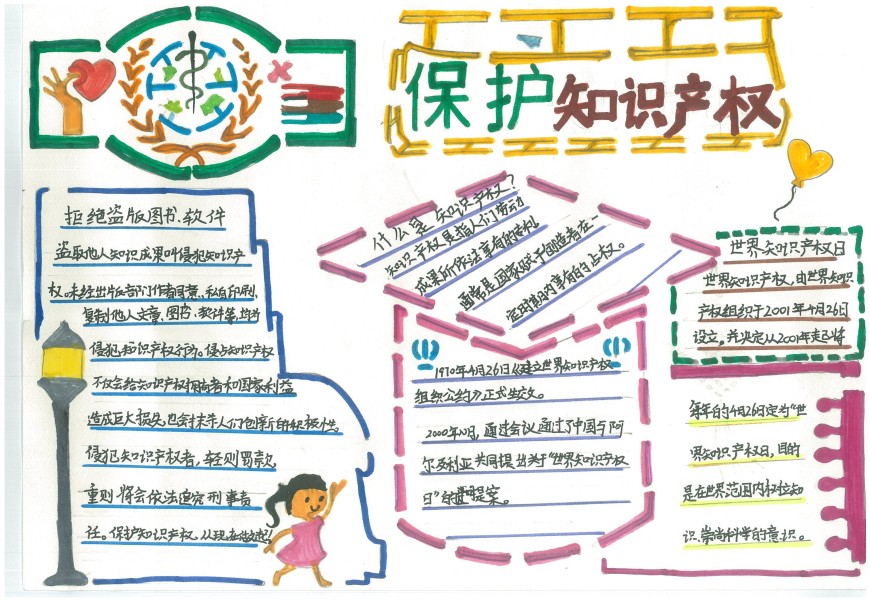 保护知识产权
拒绝盗版图书、软件
盗取他人知识成果叫侵犯知识产
权。未经出版者们作者同意,私自印刷、
复制他人文章、图书、软件等,均为
侵犯知识产权行为。侵占知识产权
不仅会给知识产权拥有者和国家利益
造成巨大损失,也会抹杀人们创新的积极性。
侵犯知识产权者,轻则罚款,
重则将会依法追究刑事责
任。保护知识产权,从现在做起!
什么是知识产权?
知识产权是指人们劳动
成果所依法享有的专利
通常是国家赋予创造者在一
定时期内享有的
1970年4月26日《建立世界知识产权
组织公约》正式生效。
2000年10月,通过会议通过了中国与阿
尔及利亚共同提出关于“世界知识产权
日”的提案。
世界知识产权日
世界知识产权,由世界知识
产权组织于2001年4月26日
设立,并决定从2001年起将
每年的4月26日定为“世
界知识产权日,目的
是在世界范围内树立知
识、崇尚科学的意识。